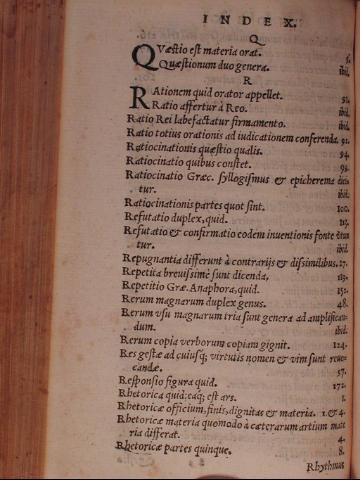 INDEX.
Q
QVæstio est materia orat. 5.
Quæstionum duo genera. ibil.
R
RAtionem quid orator appellet. 91.
Ratio affertur à Reo. ibil.
Ratio Rei labefactatur firmamento. ibil.
Ratio totius orationis ad iudicationem conferenda. 92.
Ratiocinationis quæstio qualis. 94.
Ratiocinatio quibus constet. 99.
Ratiocinatio Græc. syllogismus & epicherema
tur. ibil.
Ratiocinationis partes quot sint. 100.
Refutatio duplex, quid. 117.
Refutatio & confirmatio eodem inuentionis fonte
tur. ibil.
Repugnantia differunt à contrarijs & dissimilibus. 27.
Repetita breuissimè sunt dicenda. 183.
Repetitio Græ. Anaphora, quid. 152.
Rerum magnarum duplex genus. 48.
Rerum vsu magnarum tria sunt genera ad amplifican-
dum. ibil.
Rerum copia verborum copiam gignit. 124.
Res gestæ ad cuiusq; virtutis nomen & vim sunt reuo-
candæ. 57.
Responsio figura quid. 172.
Rhetorica quid, eaq; est ars. 1.
Rhetoricæ officium, finis, dignitas & materia. 1. & 4.
Rhetoricæ materia quomodo à cæterarum artium mate
ria differat. 4.
Rhetoricæ partes quinque. 8.
Rhythmus